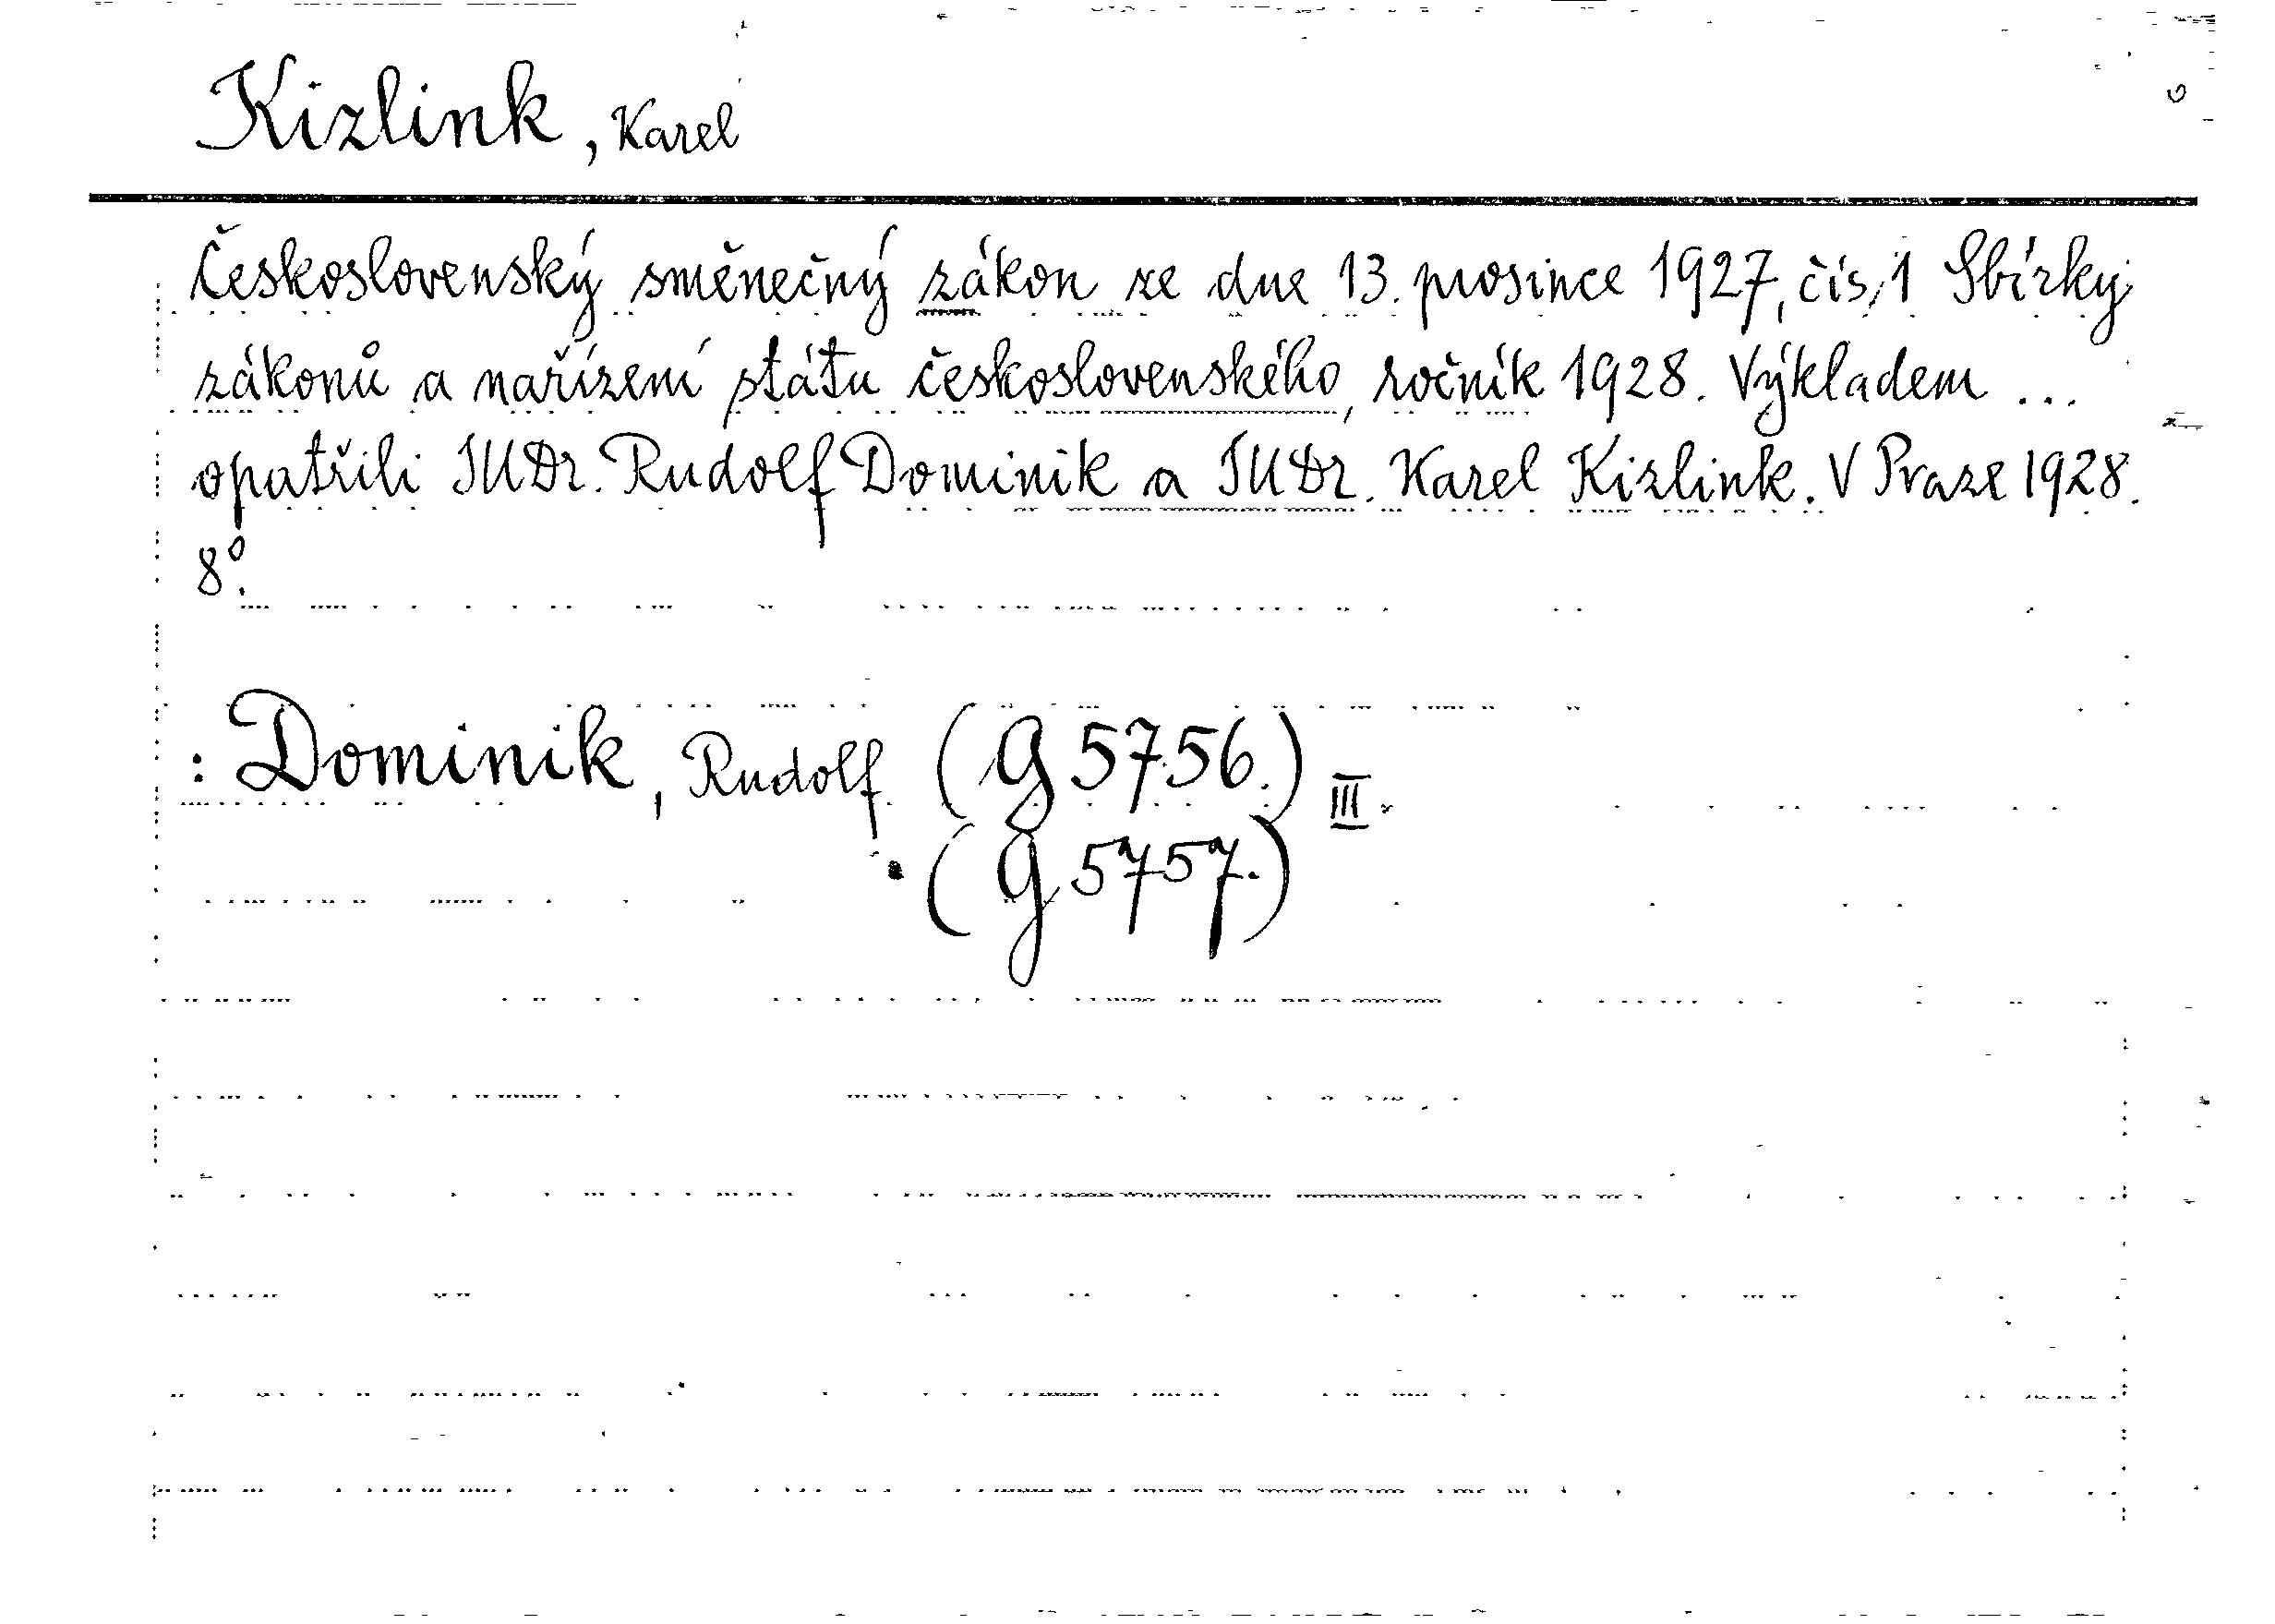 Kizlink, Karel
Československý směnečný zákon ze dne 13. prosince 1927, čís. 1 Sbírky
zákonů a nařízení státu československého, ročník 1928. Výkladem ...
opatřili JUDr. Rudolf Dominik a JUDr. Karel Kizlink. V Praze 1928.
8°.
: Dominik, Rudolf (G 5756.) III.
(G 5757.)